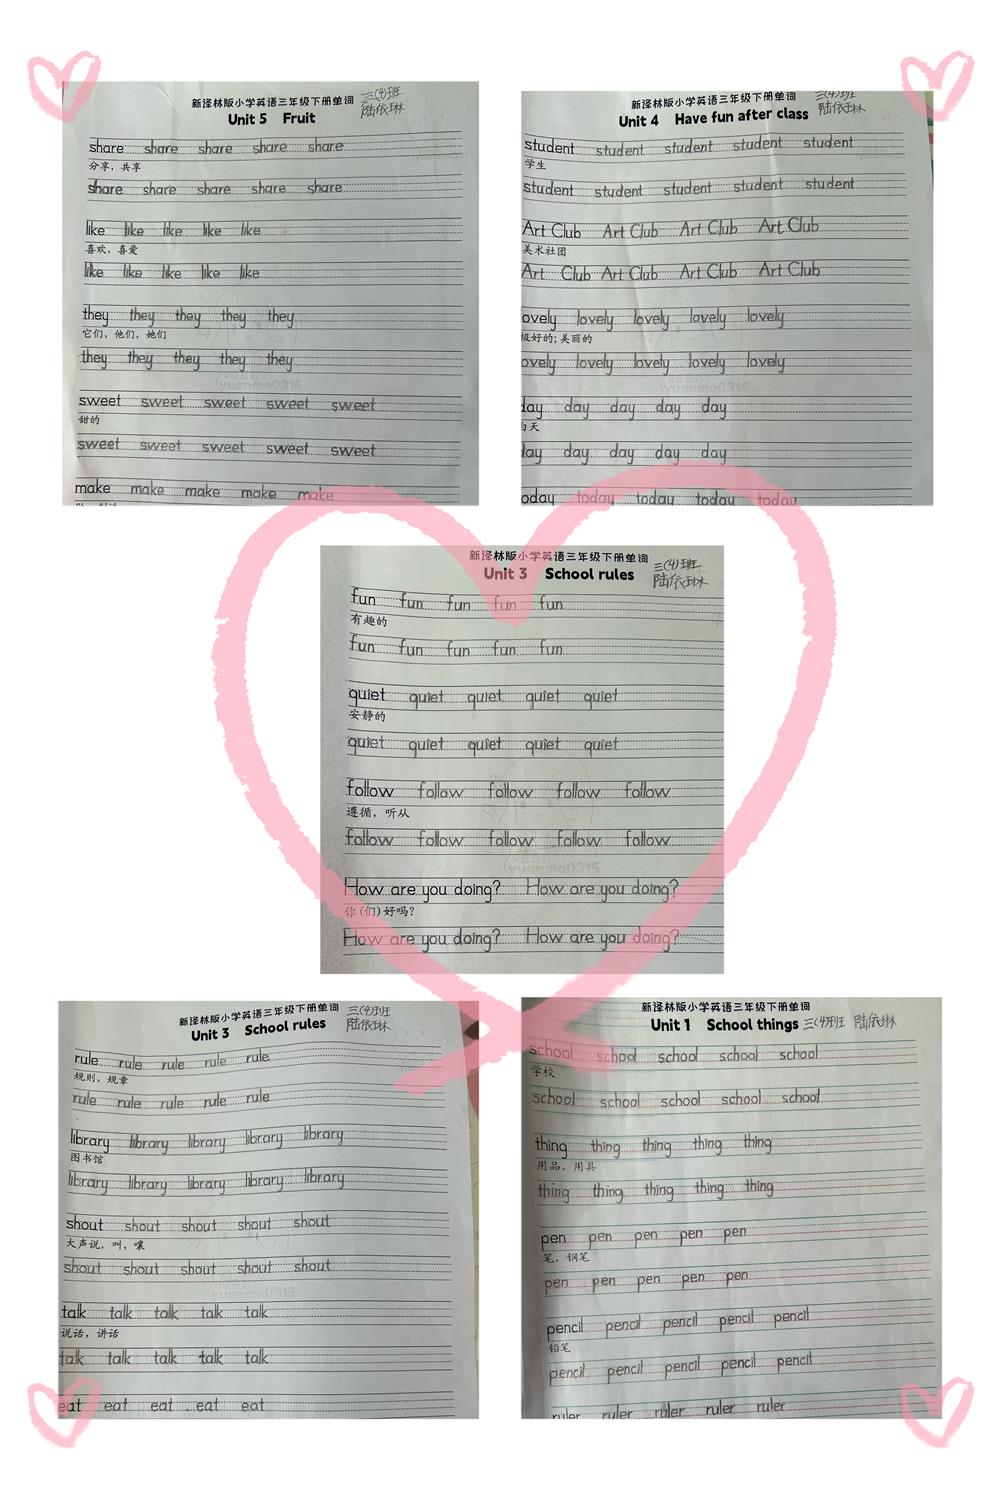 新译林版小学英语三年级下册单词 三(4)班
Unit 5 Fruit 陆依琳
share share share share share
分享，共享
share share share share share
like like like like like
喜欢，喜爱
like like like like like
they they they they they
它们，他们，她们
they they they they they
sweet sweet sweet sweet sweet
甜的
sweet sweet sweet sweet sweet
make make make make make
新译林版小学英语三年级下册单词 三(4)班
Unit 4 Have fun after class 陆依琳
student student student student student
学生
student student student student student
Art Club Art Club Art Club Art Club
美术社团
Art Club Art Club Art Club Art Club
ovely lovely lovely lovely lovely
极好的；美丽的
ovely lovely lovely lovely lovely
day day day day day
白天
day day day day day
oday today today today today
新译林版小学英语三年级下册单词 三(4)班
Unit 3 School rules 陆依琳
fun fun fun fun fun
有趣的
fun fun fun fun fun
quiet quiet quiet quiet quiet
安静的
quiet quiet quiet quiet quiet
follow follow follow follow follow
遵循，听从
follow follow follow follow follow
(yuanma0315
How are you doing? How are you doing?
你(们)好吗？
How are you doing? How are you doing?
新译林版小学英语三年级下册单词 三(4)班
Unit 3 School rules 陆依琳
rule rule rule rule rule
规则，规章
rule rule rule rule rule
library library library library library
图书馆
library library library library library
shout shout shout shout shout
大声说，叫，嚷
shout shout shout shout shout
talk talk talk talk talk
说话，讲话
talk talk talk talk talk
eat eat eat eat eat
新译林版小学英语三年级下册单词
Unit 1 School things 三(4)班 陆依琳
school school school school school
学校
school school school school school
thing thing thing thing thing
用品，用具
thing thing thing thing thing
pen pen pen pen pen
笔，钢笔
pen pen pen pen pen
pencil pencil pencil pencil pencil
铅笔
pencil pencil pencil pencil pencil
ruler ruler ruler ruler ruler